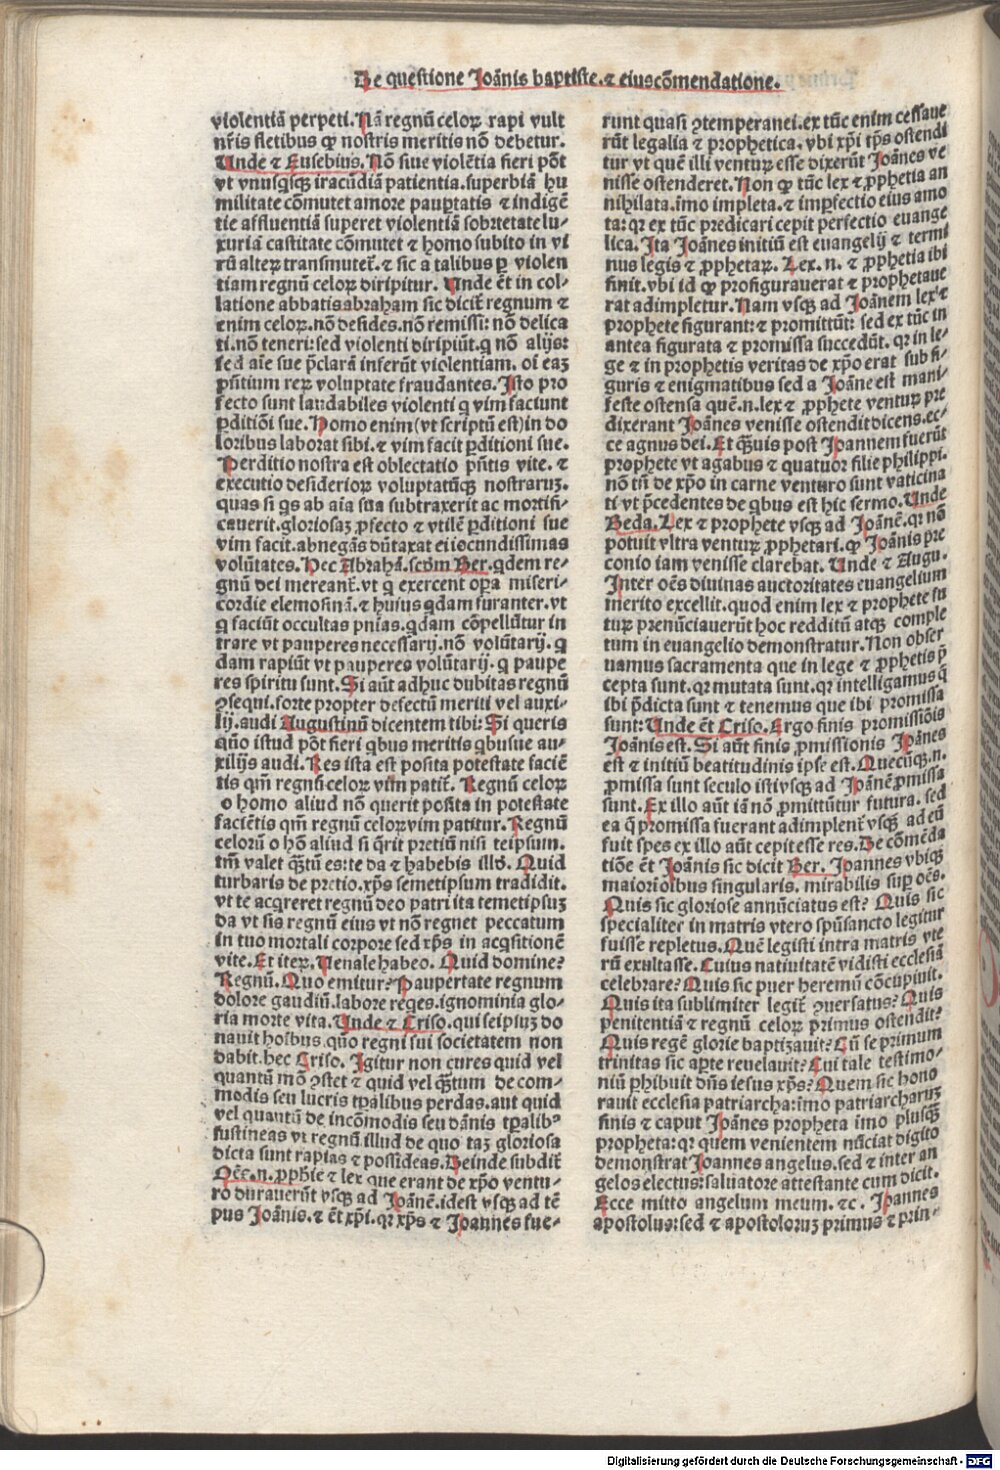 De questione Joānis baptiste.⁊ eiuscōmendatione.
violentiā perpeti. Nā regnū celoꝝ rapi vult
nr̄is fletibus qꝫ nostris meritis nō debetur.
Unde ⁊ Eusebius. Nō siue violētia fieri pōt
vt vnusqsqꝫ iracūdiā patientia. superbiā hu
militate cōmutet amore paup̱tatis ⁊ indigē
tie affluentiā superet violentiā sobrtetate lu⸗
xuriā castitate cōmutet ⁊ homo subito in vi
rū alteꝝ transmuteť. ⁊ sic a talibus p̱ violen
tiam regnū celoꝝ diripitur. Unde ēt in col⸗
latione abbatis abraham sic diciť regnum ⁊
enim celoꝝ. nō desides. nō remissi: nō delica
ti. nō teneri: sed violenti diripiūt. q nō alijs:
sed aīe sue p̄clarā inferūt violentiam. oī eaꝫ
pn̄tium reꝝ voluptate fraudantes. Isto pro
fecto sunt laudabiles violenti q vim faciunt
p̱ditiōi sue. Homo enim (vt scriptū est) in do
loribus laborat sibi. ⁊ vim facit p̱ditioni sue.
Perditio nostra est oblectatio pn̄tis vite. ⁊
executio desiderioꝝ voluptatūqꝫ nostraruꝫ.
quas si qs ab aīa sua subtraxerit ac mortifi⸗
cauerit. gloriosaꝫ ꝓfecto ⁊ vtilē p̱ditioni sue
vim facit. abnegās dūtaxat ei iocundissimas
volūtates. Hec Abrahā. scdm Ber. qdem re⸗
gnū dei mereanť. vt q exercent oꝑa miseri⸗
cordie elemosinā. ⁊ huius qdam furanter. vt
q faciūt occultas pnīas. qdam cōpellūtur in
trare vt pauperes necessarij. nō volūtarij. q
dam rapiūt vt pauperes volūtarij. q paupe
res spiritu sunt. Si aūt adhuc dubitas regnū
ꝯsequi. forte propter defectū meriti vel auxi⸗
lij. audi Augustinū dicentem tibi: Si queris
quō istud pōt fieri qbus meritis qbusue au⸗
xilijs audi. Res ista est posita potestate faciē
tis qm̄ regnū celoꝝ vim patiť. Regnū celoꝝ
o homo aliud nō querit posita in potestate
faciētis qm̄ regnū celoꝝ vim patitur. Regnū
celorū o hō aliud si qrit pretiū nisi teipsum.
tm̄ valet qꝫtū es: te da ⁊ habebis illd. Quid
turbaris de pretio. xp̄s semetipsum tradidit.
vt te acqreret regnū deo patri ita temetipsuꝫ
da vt sis regnū eius vt nō regnet peccatum
in tuo mortali corpore sed xp̄s in acqsitionē
vite. Et iteꝝ. Uenale habeo. Quid domine?
Regnū. Quo emitur? Paupertate regnum
dolore gaudiū. labore reqes. ignominia glo⸗
ria morte vita. Unde ⁊ Criso. qui seipsuꝫ do
nauit hoībus. quō regni sui societatem non
dabit. hec Criso. Igitur non cures quid vel
quantū mō ꝯstet ⁊ quid vel qꝫtum de com⸗
modis seu lucris tꝑalibus perdas. aut quid
vel quantū de incōmodis seu dānis tꝑalibꝰ
sustineas vt regnū illud de quo taꝫ gloriosa
dicta sunt rapias ⁊ possideas. Deinde subdiť
Oēs. n. ꝓphīe ⁊ lex que erant de xp̄o ventu⸗
ro durauerūt vsqꝫ ad Joānē. idest vsqꝫ ad tē
pus Joānis. ⁊ ēt xp̄i. qꝛ xp̄s ⁊ Joannes fue⸗
runt quasi ꝯtemperanei. ex tūc enim cessaue
rūt legalia ⁊ prophetica. vbi xp̄i tp̄s ostendi
tur vt quē illi ventuꝝ esse dixerūt Joānes ve
nisse ostenderet. Non qꝫ tūc lex ⁊ ꝓphetia an
nihilata. imo impleta. ⁊ imꝑfectio eius amo
ta: qꝛ ex tūc predicari cepit perfectio euange
lica. Ita Joānes initiū est euangelij ⁊ termi
nus legis ⁊ ꝓphetaꝝ. Lex. n. ⁊ ꝓphetia ibi
finit. vbi id qꝫ profigurauerat ⁊ prophetaue
rat adimpletur. Nam vsqꝫ ad Joānem lex ⁊
prophete figurant: ⁊ promittūt: sed ex tūc in
antea figurata ⁊ promissa succedūt. qꝛ in le⸗
ge ⁊ in prophetis veritas de xp̄o erat sub fi⸗
guris ⁊ enigmatibus sed a Joāne est mani⸗
feste ostensa quē. n. lex ⁊ ꝓphete ventuꝝ pre
dixerant Joānes venisse ostendit dicens. ec⸗
ce agnus dei. Et qꝫuis post Joannem fuerūt
prophete vt agabus ⁊ quatuor filie philippi.
nō tn̄ de xp̄o in carne venturo sunt vaticina
ti vt p̄cedentes de qbus est hic sermo. Unde
Beda. Lex ⁊ prophete vsqꝫ ad Joānē. qꝛ nō
potuit vltra ventuꝝ ꝓphetari. qꝫ Joānis pre
conio iam venisse clarebat. Unde ⁊ Augu.
Inter oēs diuinas auctoritates euangelium
merito excellit. quod enim lex ⁊ prophete fu
tuꝝ prenūciauerūt hoc redditū atqꝫ comple
tum in euangelio demonstratur. Non obser
uamus sacramenta que in lege ⁊ ꝓphetis p̄
cepta sunt. qꝛ mutata sunt. qꝛ intelligamus q̄
ibi p̄dicta sunt ⁊ tenemus que ibi promissa
sunt: Unde ēt Criso. Ergo finis promissiōis
Joānis est. Si aūt finis ꝓmissionis Joānes
est ⁊ initiū beatitudinis ipse est. Quecūqꝫ. n.
ꝓmissa sunt seculo isti vsqꝫ ad Joānē ꝓmissa
sunt. Ex illo aūt iā nō ꝓmittūtur futura. sed
ea q̄ promissa fuerant adimplenť vsqꝫ ad eū
fuit spes ex illo aūt cepit esse res. De cōmēda
tiōe ēt Joānis sic dicit Ber. Joannes vbiqꝫ
maior oībus singularis. mirabilis suꝑ oēs.
Quis sic gloriose annūciatus est? Quis sic
specialiter in matris vtero spūsancto legitur
fuisse repletus. Quē legisti intra matris vte
rū exultasse. Cuius natiuitatē vidisti ecclesiā
celebrare? Quis sic puer heremū cōcupiuit.
Quis ita sublimiter legiť ꝯuersatus? Quis
penitentiā ⁊ regnū celoꝝ primus ostendit?
Quis regē glorie baptizauit? Cū se primum
trinitas sic aꝑte reuelauit? Cui tale testimo⸗
niū ꝑhibuit dn̄s iesus xp̄s? Quem sic hono
rauit ecclesia patriarcha: imo patriarcharuꝫ
finis ⁊ caput Joānes propheta imo plusqꝫ
propheta: qꝛ quem venientem nūciat digito
demonstrat Joannes angelus. sed ⁊ inter an
gelos electus: saluatore attestante cum dicit.
Ecce mitto angelum meum. ⁊c. Joannes
apostolus: sed ⁊ apostoloruꝫ primus ⁊ prin⸗
Digitalisierung gefördert durch die Deutsche Forschungsgemeinschaft - DFG